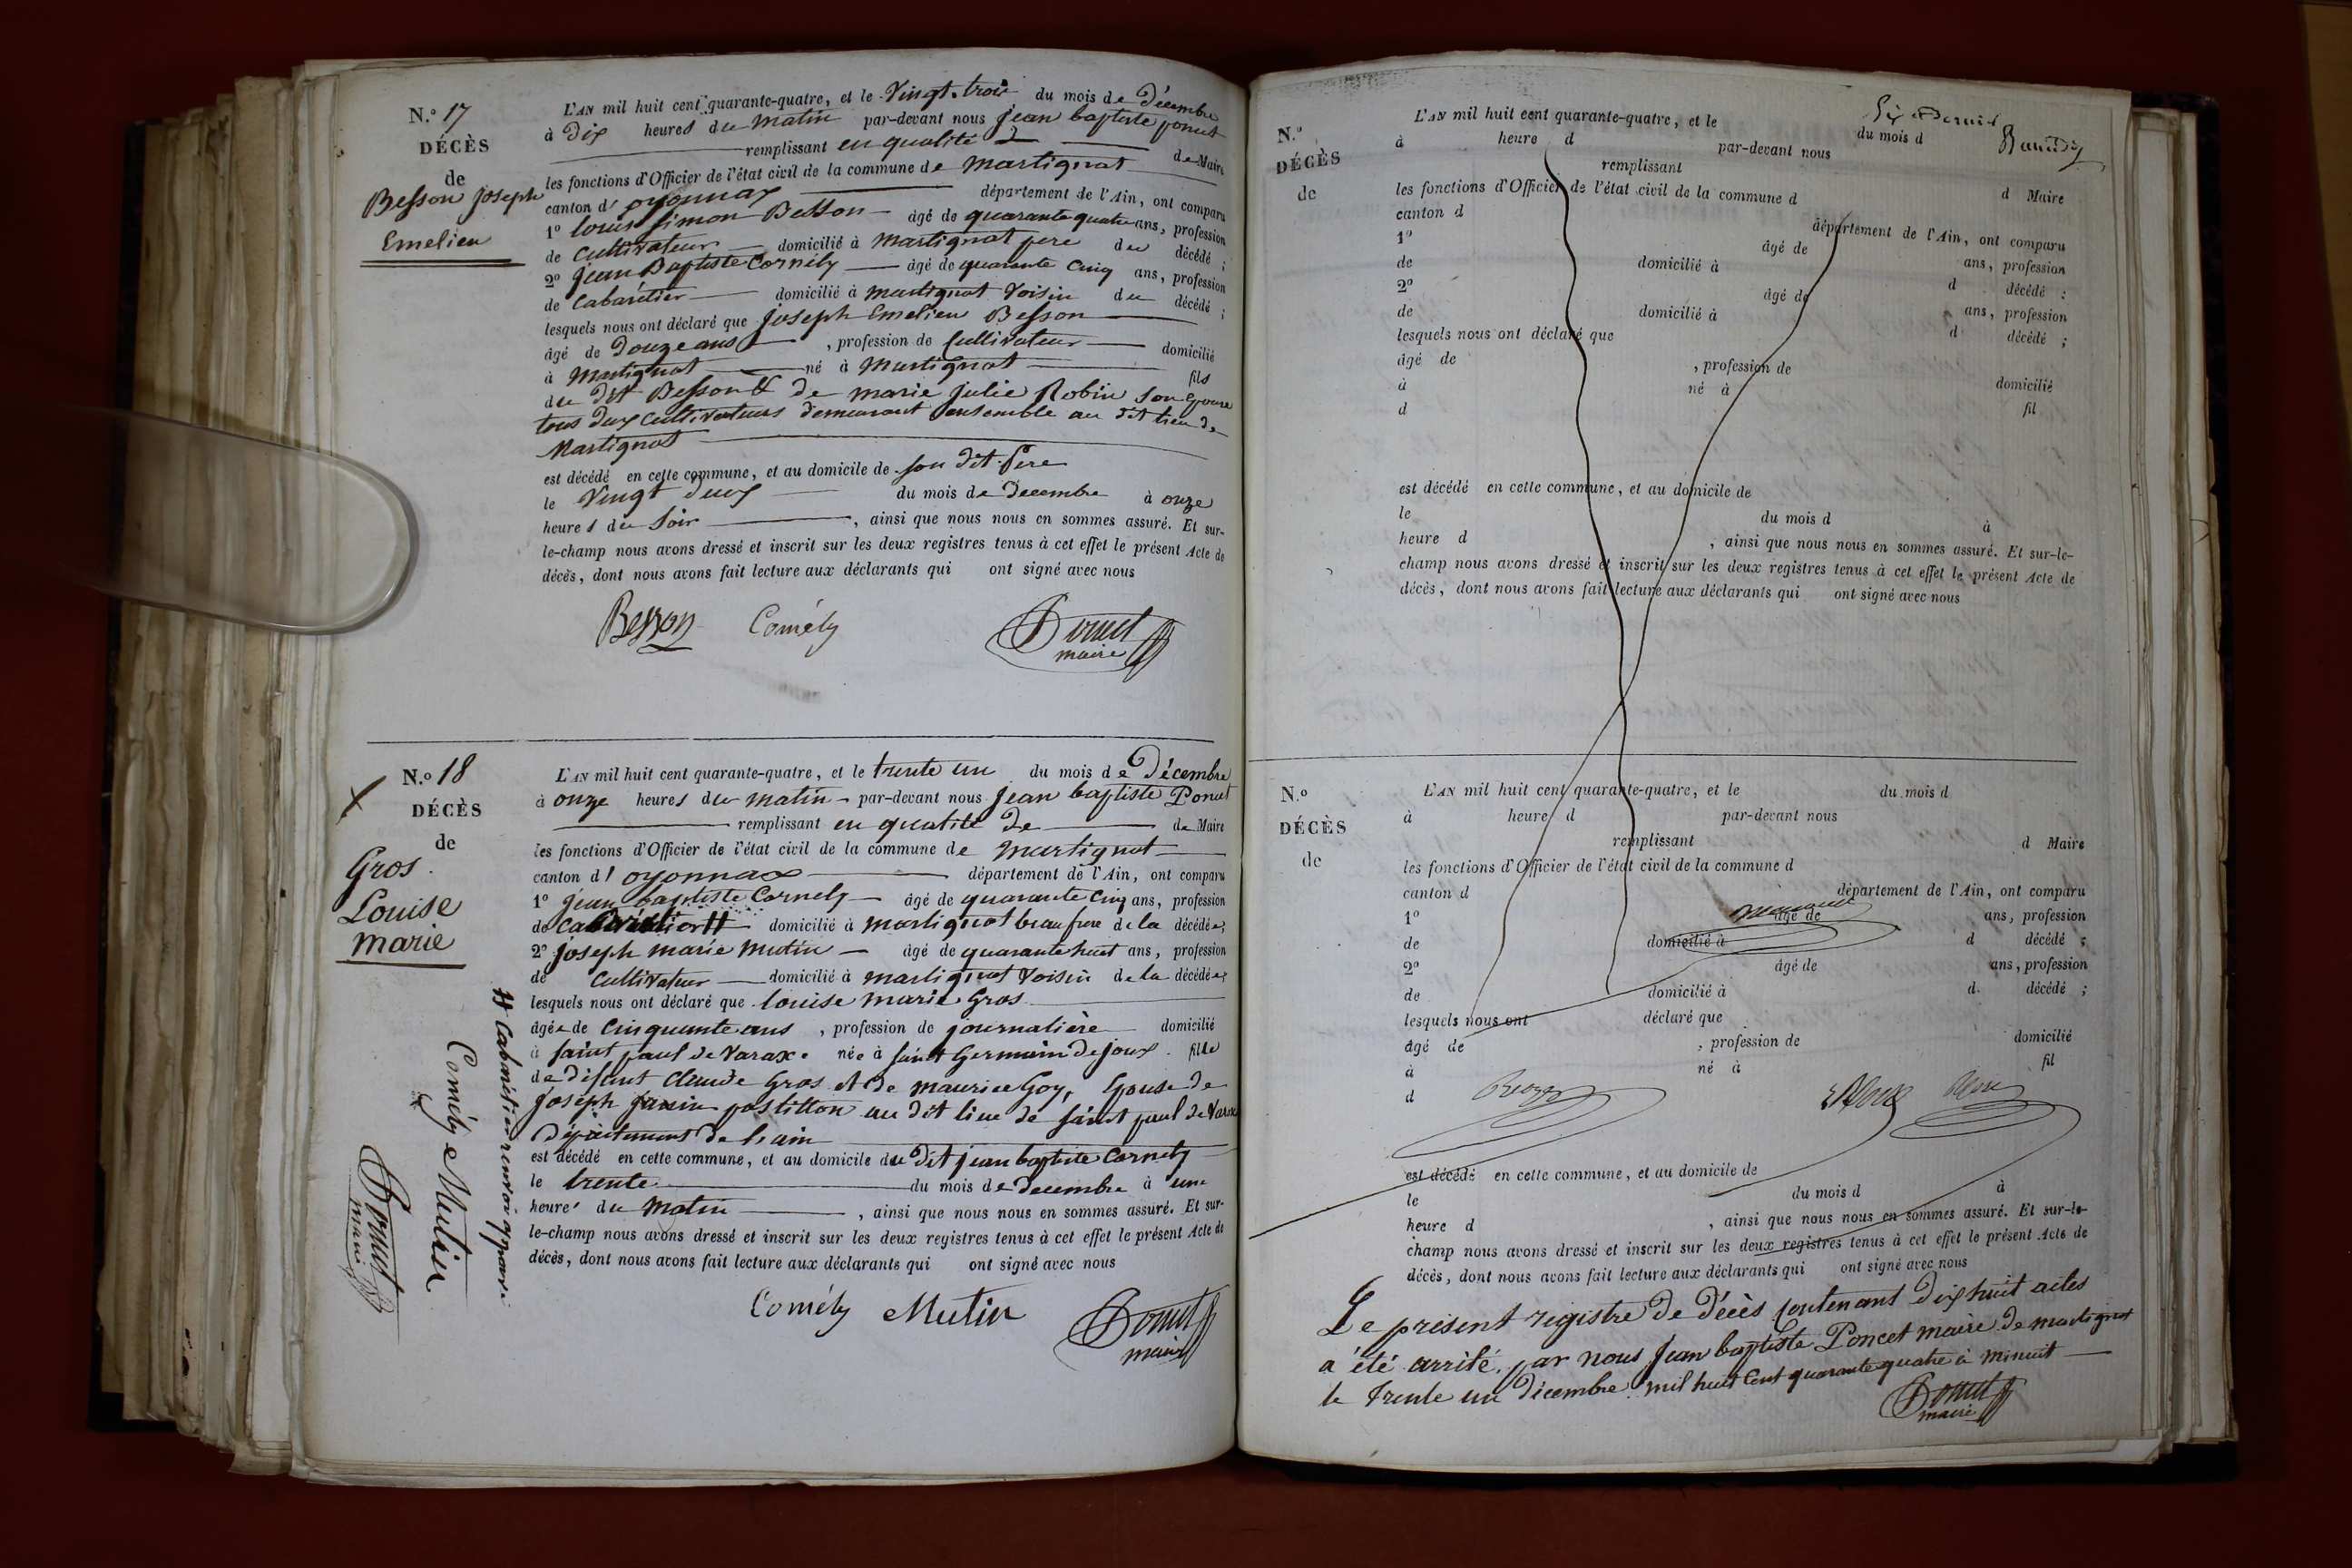 N.º 17
DÉCÈS
de
Besson Joseph
Emelien
L'AN mil huit cent quarante-quatre, et le Vingt-trois du mois de Décembre
à dix heures du matin par-devant nous jean baptiste poncet
remplissant en qualité de Maire
les fonctions d'Officier de l'état civil de la commune de martignat
canton d'oyonnax département de l'Ain, ont comparu
1º louis simon Besson âgé de quarante quatre ans, profession
de Cultivateur domicilié à martignat pere du décédé ;
2º jean Baptiste Cornély âgé de quarante Cinq ans, profession
de Cabarétier domicilié à martignat Voisin du décédé ;
lesquels nous ont déclaré que joseph Emelien Besson
âgé de Douze ans , profession de Cultivateur domicilié
à martignat né à martignat fils
du dit Besson & de marie julie Robin son épouse
tous deux Cultivateurs demeurant ensemble au dit lieu de
Martignat
est décédé en cette commune, et au domicile de son dit père
le Vingt deux du mois de Decembre à onze
heures du Soir , ainsi que nous nous en sommes assuré. Et sur-
le-champ nous avons dressé et inscrit sur les deux registres tenus à cet effet le présent Acte de
décès, dont nous avons fait lecture aux déclarants qui ont signé avec nous
Besson Cornély Poncet
maire
N.º 18
DÉCÈS
de
Gros
Louise
marie
L'AN mil huit cent quarante-quatre, et le trente un du mois de Décembre
à onze heures du matin par-devant nous jean baptiste Poncet
remplissant en qualité de de Maire
les fonctions d'Officier de l'état civil de la commune de martignat
canton d'oyonnax département de l'Ain, ont comparu
1º jean baptiste Cornely âgé de quarante Cinq ans, profession
de domicilié à martignat beau frere de la décédée ;
2º joseph marie mutin âgé de quarante huit ans, profession
de Cultivateur domicilié à martignat Voisin de la décédée ;
lesquels nous ont déclaré que louise marie Gros
âgée de Cinquante ans , profession de journalière domicilié
à saint paul de Varax née à saint Germain de joux fille
de défunt Claude Gros et de maurice Goy, Epouse de
joseph janin postillon au dit lieu de saint paul de Varax
département de l'ain
est décédé en cette commune, et au domicile du dit jean baptiste Cornely
le trente du mois de Decembre à une
heure du matin , ainsi que nous nous en sommes assuré. Et sur-
le-champ nous avons dressé et inscrit sur les deux registres tenus à cet effet le présent Acte de
décès, dont nous avons fait lecture aux déclarants qui ont signé avec nous
Cornély Mutin Poncet
maire
# Cabarétier renvoi approuvé
Cornély Mutin
Poncet
maire
N.º
DÉCÈS
de
L'AN mil huit cent quarante-quatre, et le du mois d
à heure d par-devant nous
remplissant d Maire
les fonctions d'Officier de l'état civil de la commune d
canton d département de l'Ain, ont comparu
1º âgé de ans, profession
de domicilié à d décédé ;
2º âgé de ans, profession
de domicilié à d décédé ;
lesquels nous ont déclaré que
âgé de , profession de domicilié
à né à fil
d
est décédé en cette commune, et au domicile de
le du mois d à
heure d , ainsi que nous nous en sommes assuré. Et sur-le-
champ nous avons dressé et inscrit sur les deux registres tenus à cet effet le présent Acte de
décès, dont nous avons fait lecture aux déclarants qui ont signé avec nous
N.º
DÉCÈS
de
L'AN mil huit cent quarante-quatre, et le du mois d
à heure d par-devant nous
remplissant d Maire
les fonctions d'Officier de l'état civil de la commune d
canton d département de l'Ain, ont comparu
1º âgé de ans, profession
de domicilié à d décédé ;
2º âgé de ans, profession
de domicilié à d décédé ;
lesquels nous ont déclaré que
âgé de , profession de domicilié
à né à fil
d
est décédé en cette commune, et au domicile de
le du mois d à
heure d , ainsi que nous nous en sommes assuré. Et sur-le-
champ nous avons dressé et inscrit sur les deux registres tenus à cet effet le présent Acte de
décès, dont nous avons fait lecture aux déclarants qui ont signé avec nous
Le présent registre de décès Contenant dix huit actes
a été arrêté, par nous jean baptiste Poncet maire de martignat
le trente un décembre mil huit Cent quarante quatre à minuit
Poncet
maire